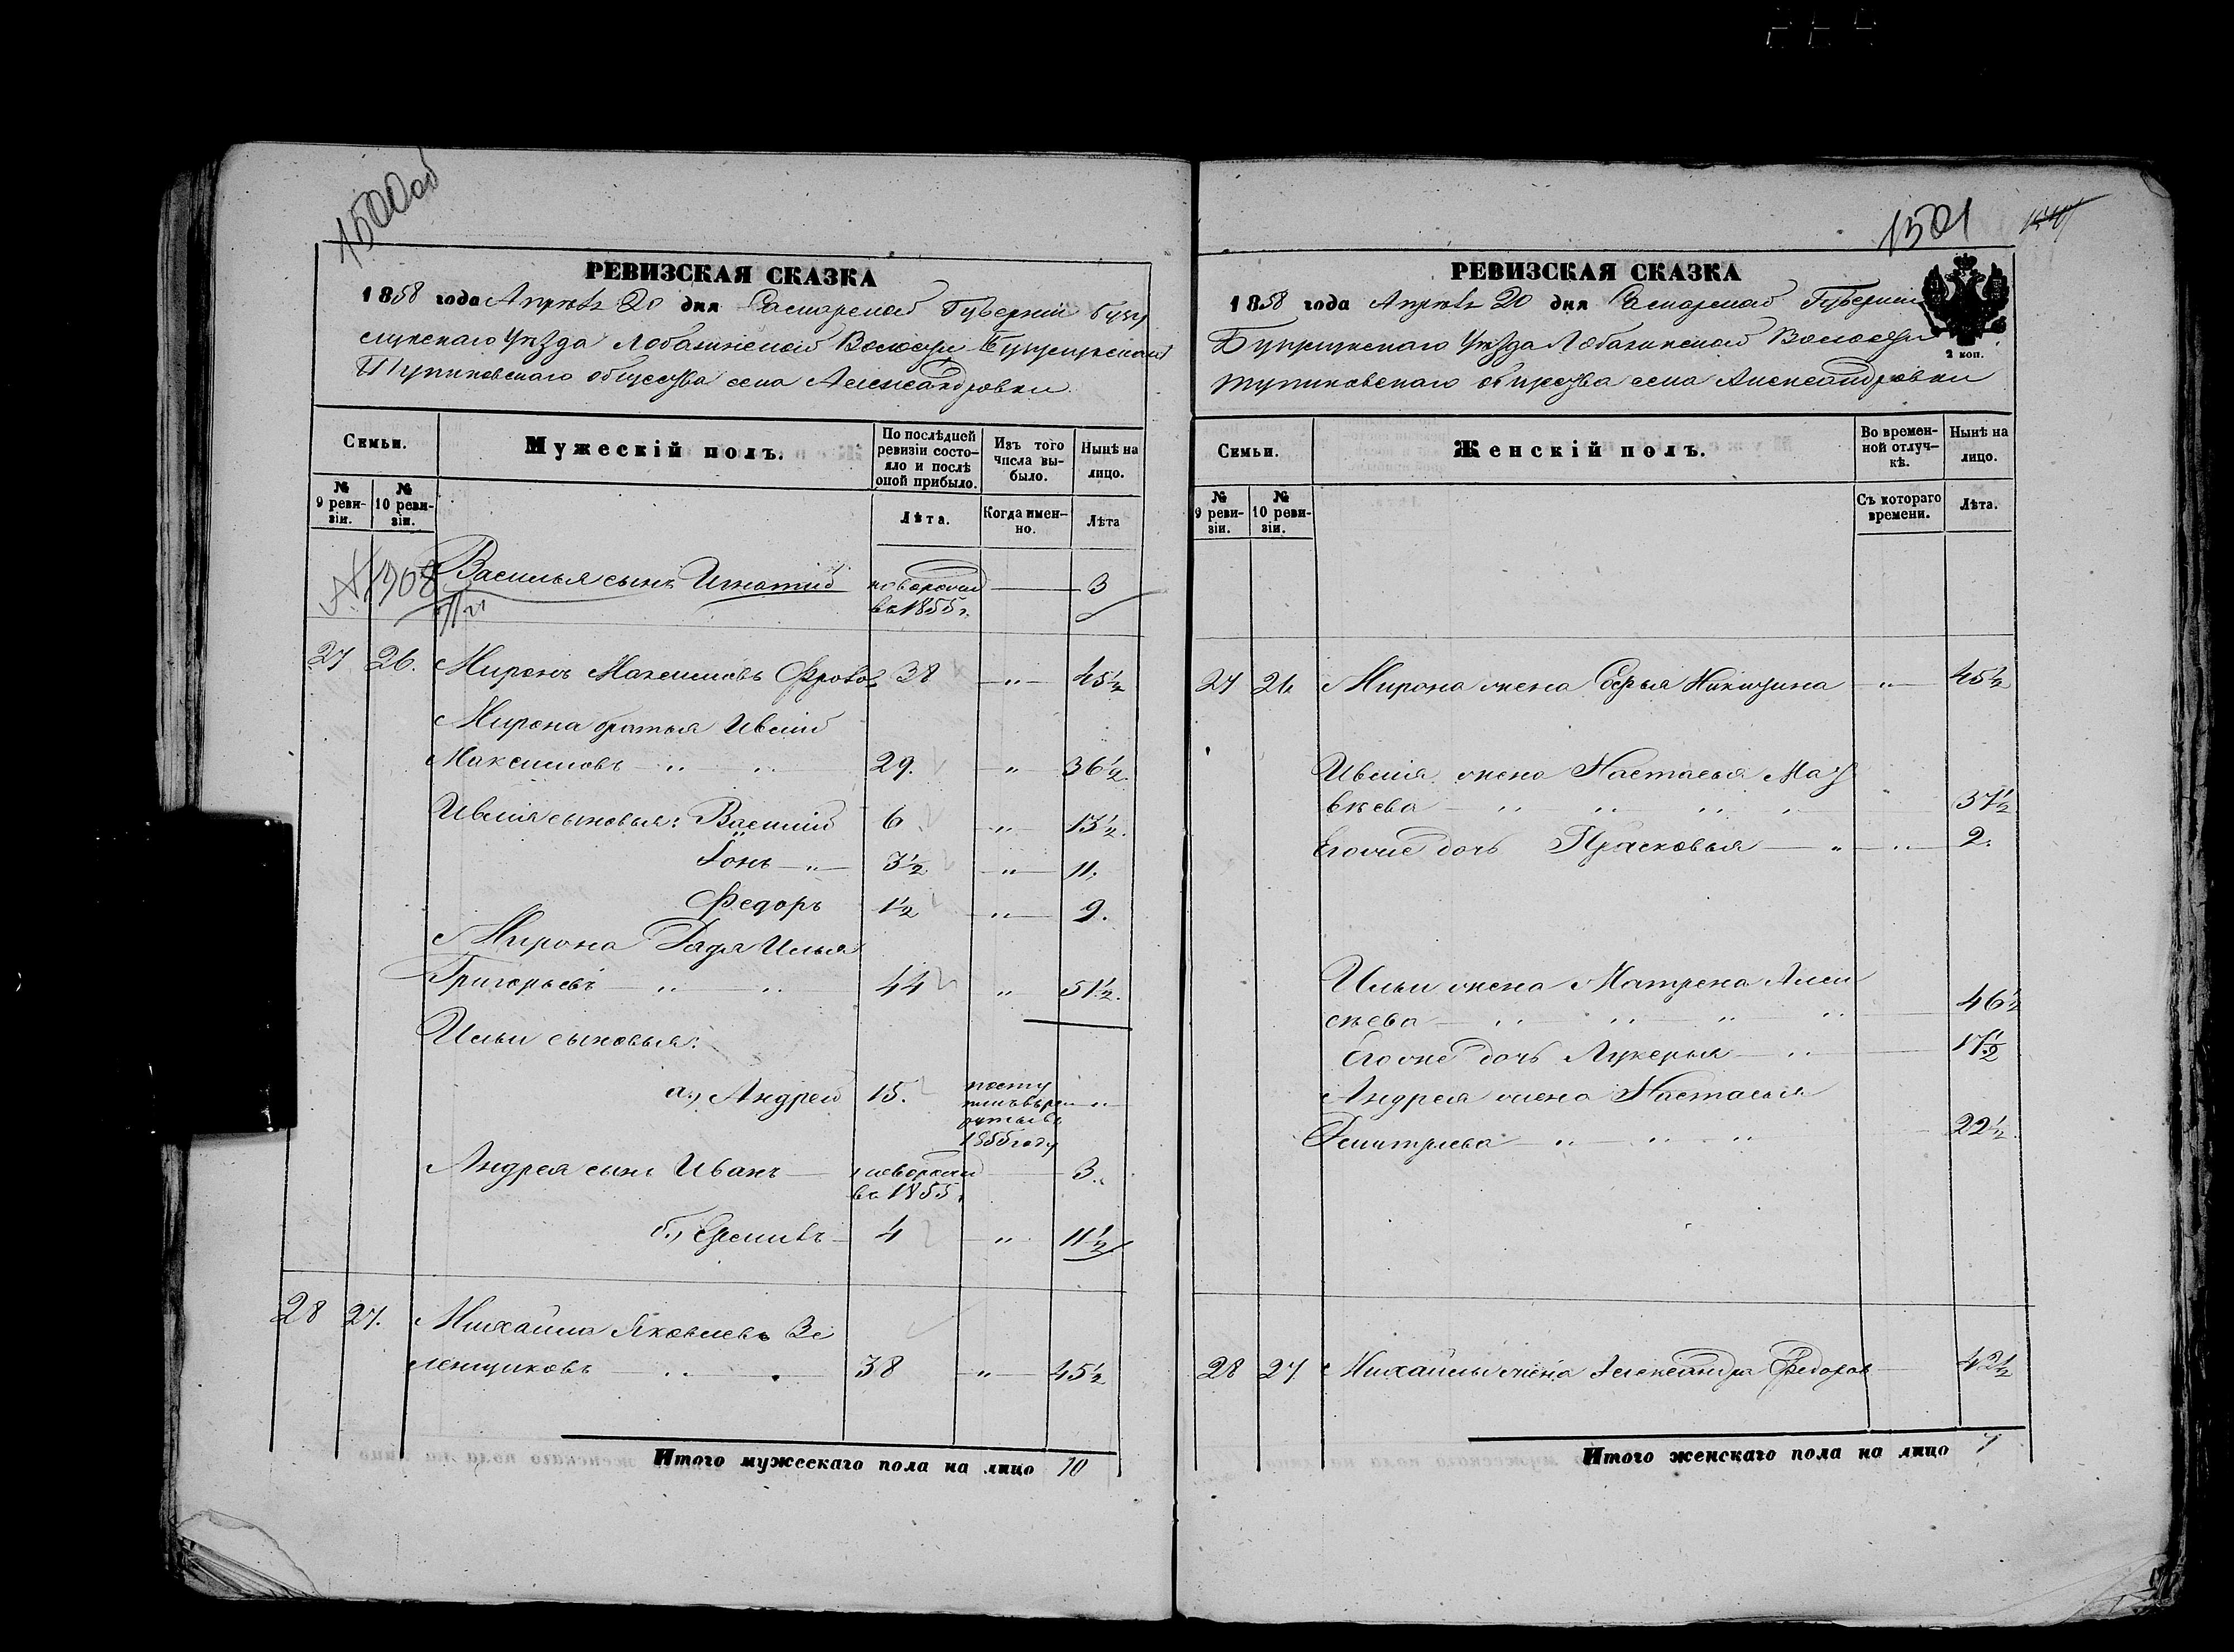 1500об
РЕВИЗСКАЯ СКАЗКА
1858 года Апреля 20 дня Самарской Губернии Бузу
лукскаго Уѣзда Лобазинской Волости
общества села Александровки
Семьи.
Мужескій полъ.
По послѣдней ревизіи состояло и послѣ оной прибыло.
Изъ того числа выбыло.
Нынѣ на лицо.
№ 9 ревизіи.
№ 10 ревизіи.
Лѣта.
Когда именно.
Лѣта
Василья сынъ Игнатій новорожд. во 1855 г. 3
27 26. Миронъ Максимовъ Фролов 38 „ 45½
Мирона братья Ивлий
Максимовъ 29. „ 36½.
Ивлия сыновья: Василий 6 „ 13½.
Іонъ 3½ „ 11.
Федоръ 1½ „ 9.
Мирона Дядя Илья
Григорьевъ 44 „ 51½.
Ильи сыновья:
а., Андрей 15. посту
пилъ въ рек
руты въ
1855 году
Андрея сынъ Иванъ новорожд 3.
во 1855.
б., 4 „ 11½
28 27. Михайла Яковлевъ Зе
ленщиковъ 38 „ 45½
Итого мужескаго пола на лицо 10
1501
РЕВИЗСКАЯ СКАЗКА
1858 года Апреля 20 дня Самарской Губернии
Бузулукскаго Уѣзда Лобазинской Волости
общества села Александровки
2 коп.
Семьи.
Женскій полъ.
Во временной отлучкѣ.
Нынѣ на лицо.
№ 9 ревизіи.
№ 10 ревизіи.
Съ котораго времени.
Лѣта.
27 26 Мирона жена Софья Никитина „ 45½
Ивлия жена Настасья Мат
вѣева 37½
Его же дочь Прасковья „ 2.
Ильи жена Матрена Алек
сѣева 46½
Его же дочь Лукерья 17½
Андрея жена Настасья
Дмитриева 22½.
28 27 Михайлы жена Александра Федоров 42½
Итого женскаго пола на лицо 7